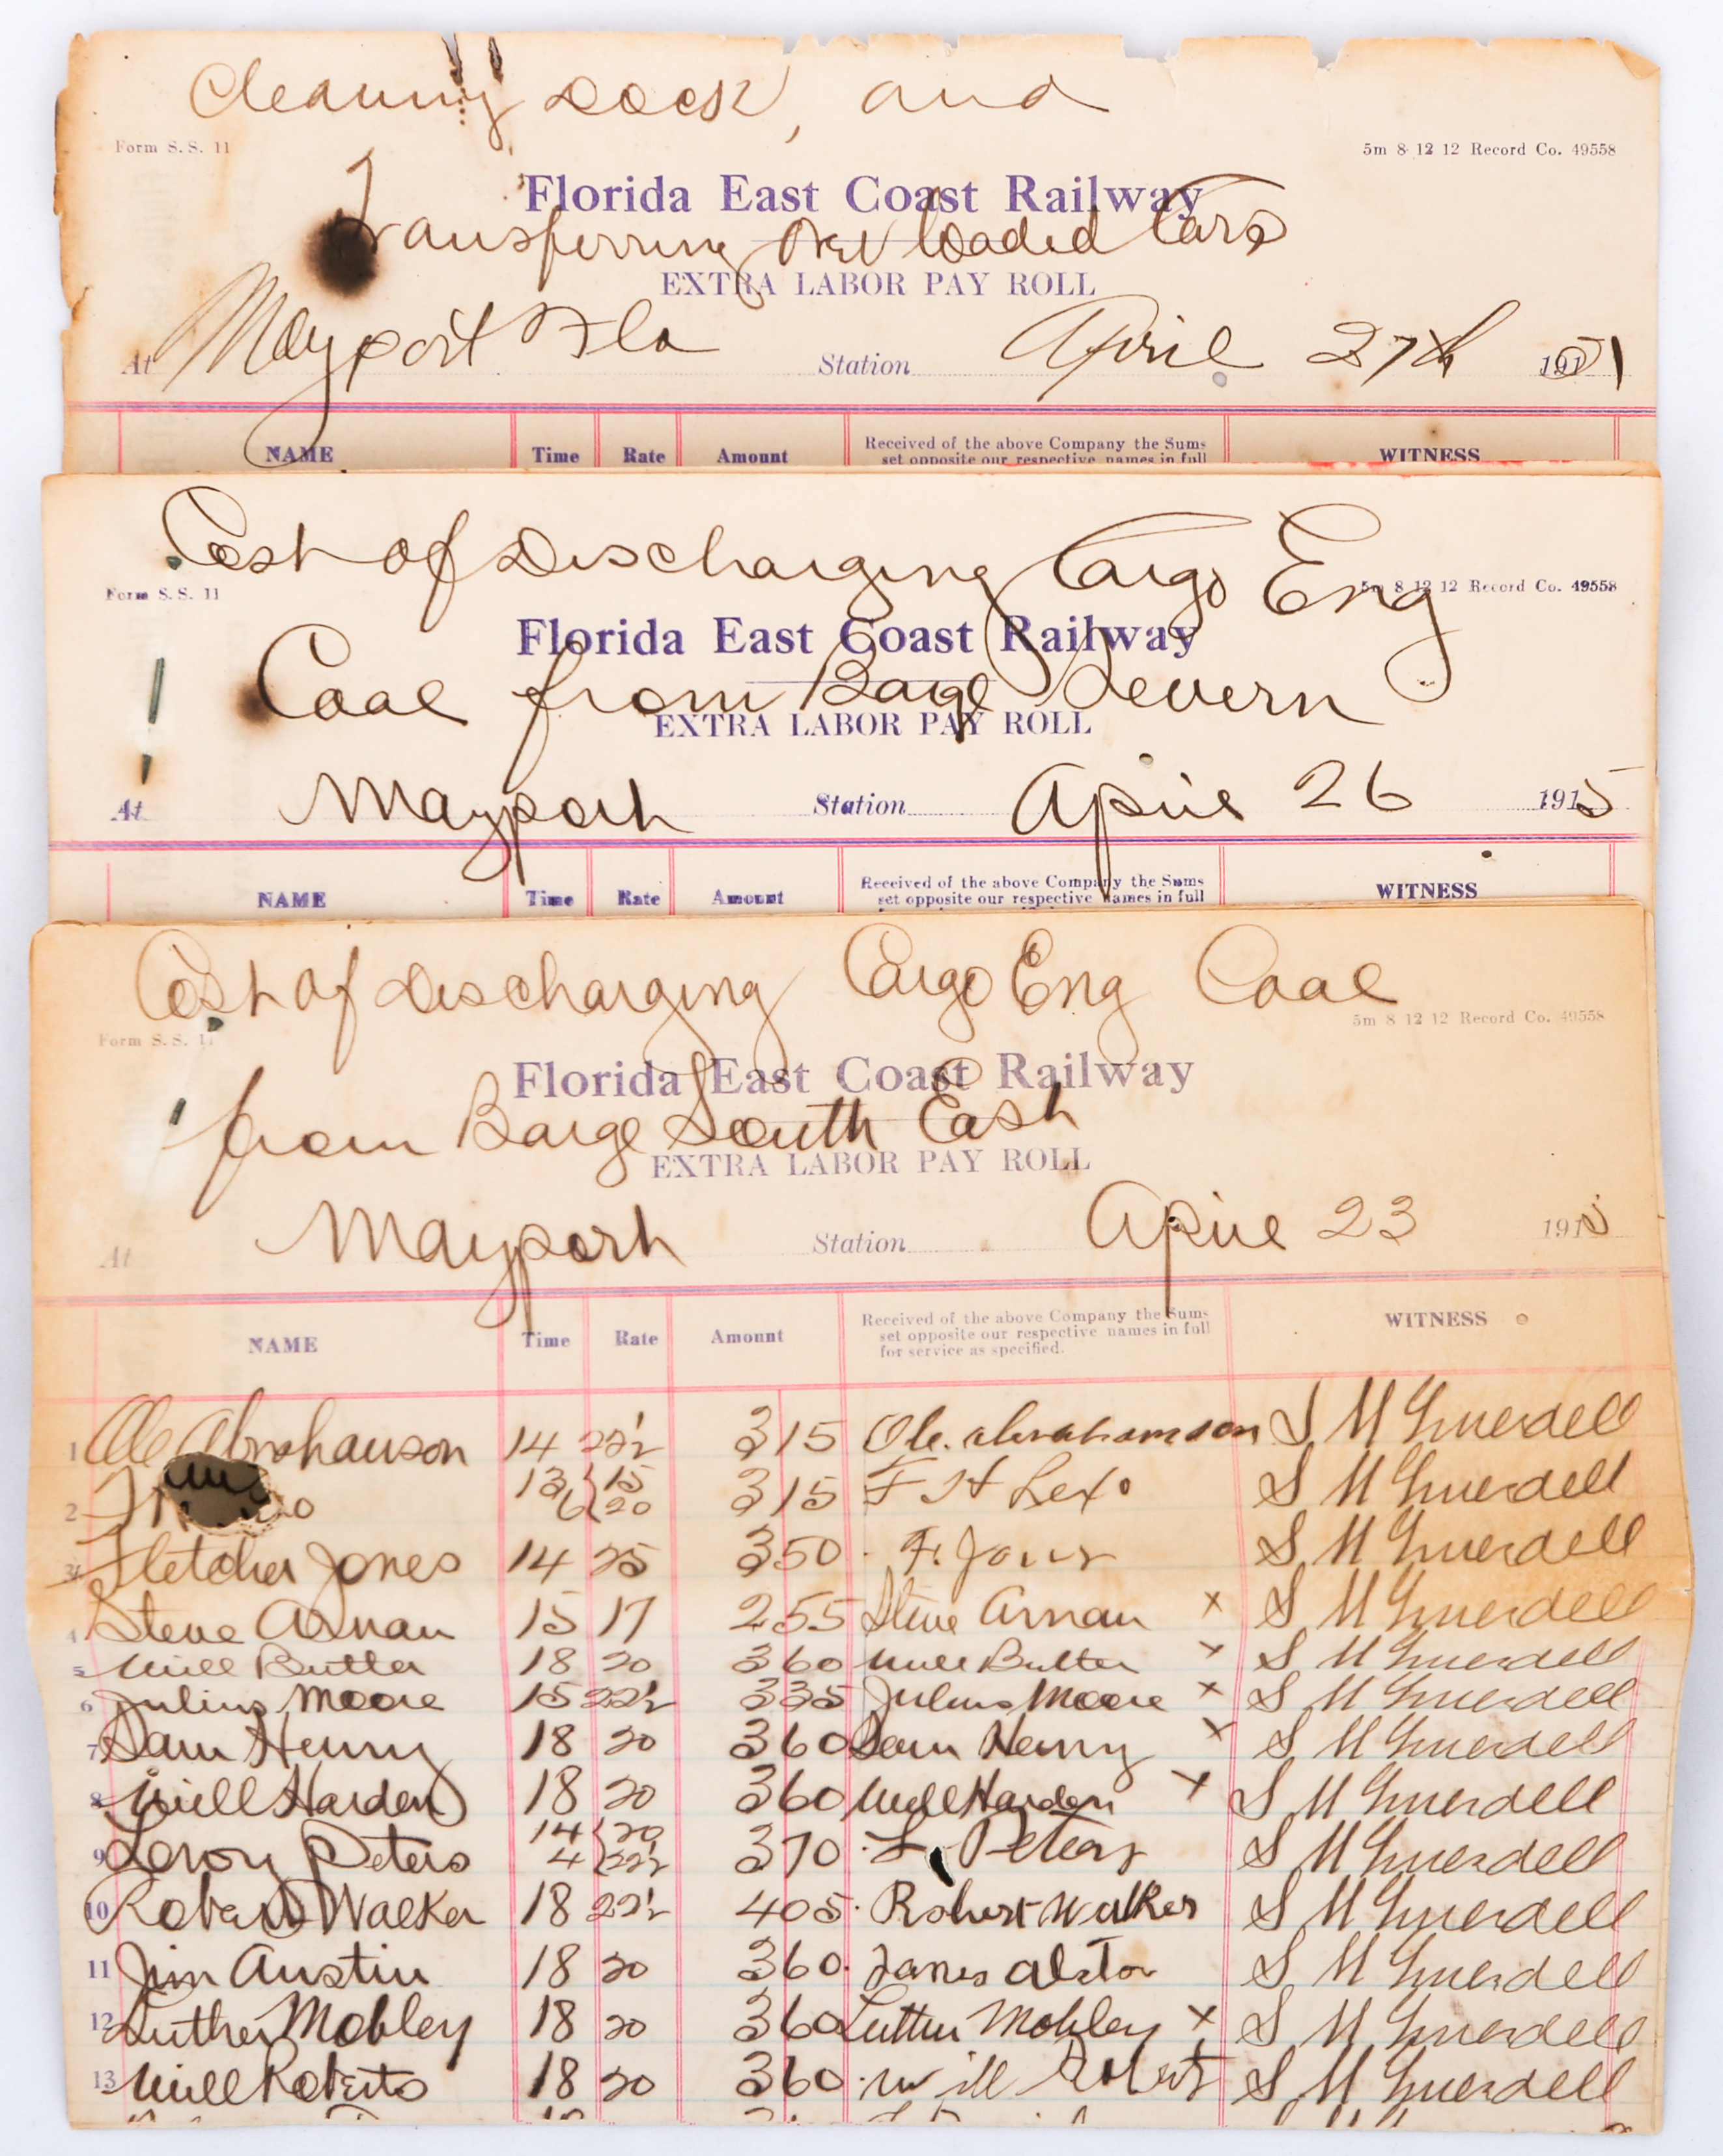 Cleaning Dock, and
Form S. S. 11
5m 8 12 12 Record Co. 49558
Florida East Coast Railway
Transferring Over loaded Cars
EXTRA LABOR PAY ROLL
At Mayport Fla Station April 27th 191
NAME Time Rate Amount Received of the above Company the Sums WITNESS
set opposite our respective names in full
Cost of Discharging Cargo Eng
Form S. S. 11
5m 8 12 12 Record Co. 49558
Florida East Coast Railway
Coal from Barge Severn
EXTRA LABOR PAY ROLL
At Mayport Station April 26 1915
NAME Time Rate Amount Received of the above Company the Sums WITNESS
set opposite our respective names in full
Cost of Discharging Cargo Eng Coal
Form S. S. 1
5m 8 12 12 Record Co. 49558
Florida East Coast Railway
from Barge South East
EXTRA LABOR PAY ROLL
At Mayport Station April 23 1915
NAME Time Rate Amount Received of the above Company the Sums WITNESS
set opposite our respective names in full
for service as specified.
1 Ole Abrahauson 14 22½ 315 Ole. abrahamson S M
2 13 15 315 F H Lexo S M
6 20
3 Fletcher Jones 14 25 350 F. Jones S M
4 Steve Arnau 15 17 255 Steve Arnau x S M
5 Will Butler 18 20 360 Will Butler x S M
6 Julius Moore 15 22½ 335 Julius Moore x S M
7 Sam Henry 18 20 360 Sam Henry x S M
8 Will Harden 18 20 360 Will Harden x S M
9 Leroy Peters 14 20 370 L. Peters S M
4 22½
10 Robert Walker 18 22½ 405 Robert Walker S M
11 Jim Austin 18 20 360 James S M
12 Luther Mobley 18 20 360 Luther Mobley x S M
13 Will Roberts 18 20 360 Will Roberts S M